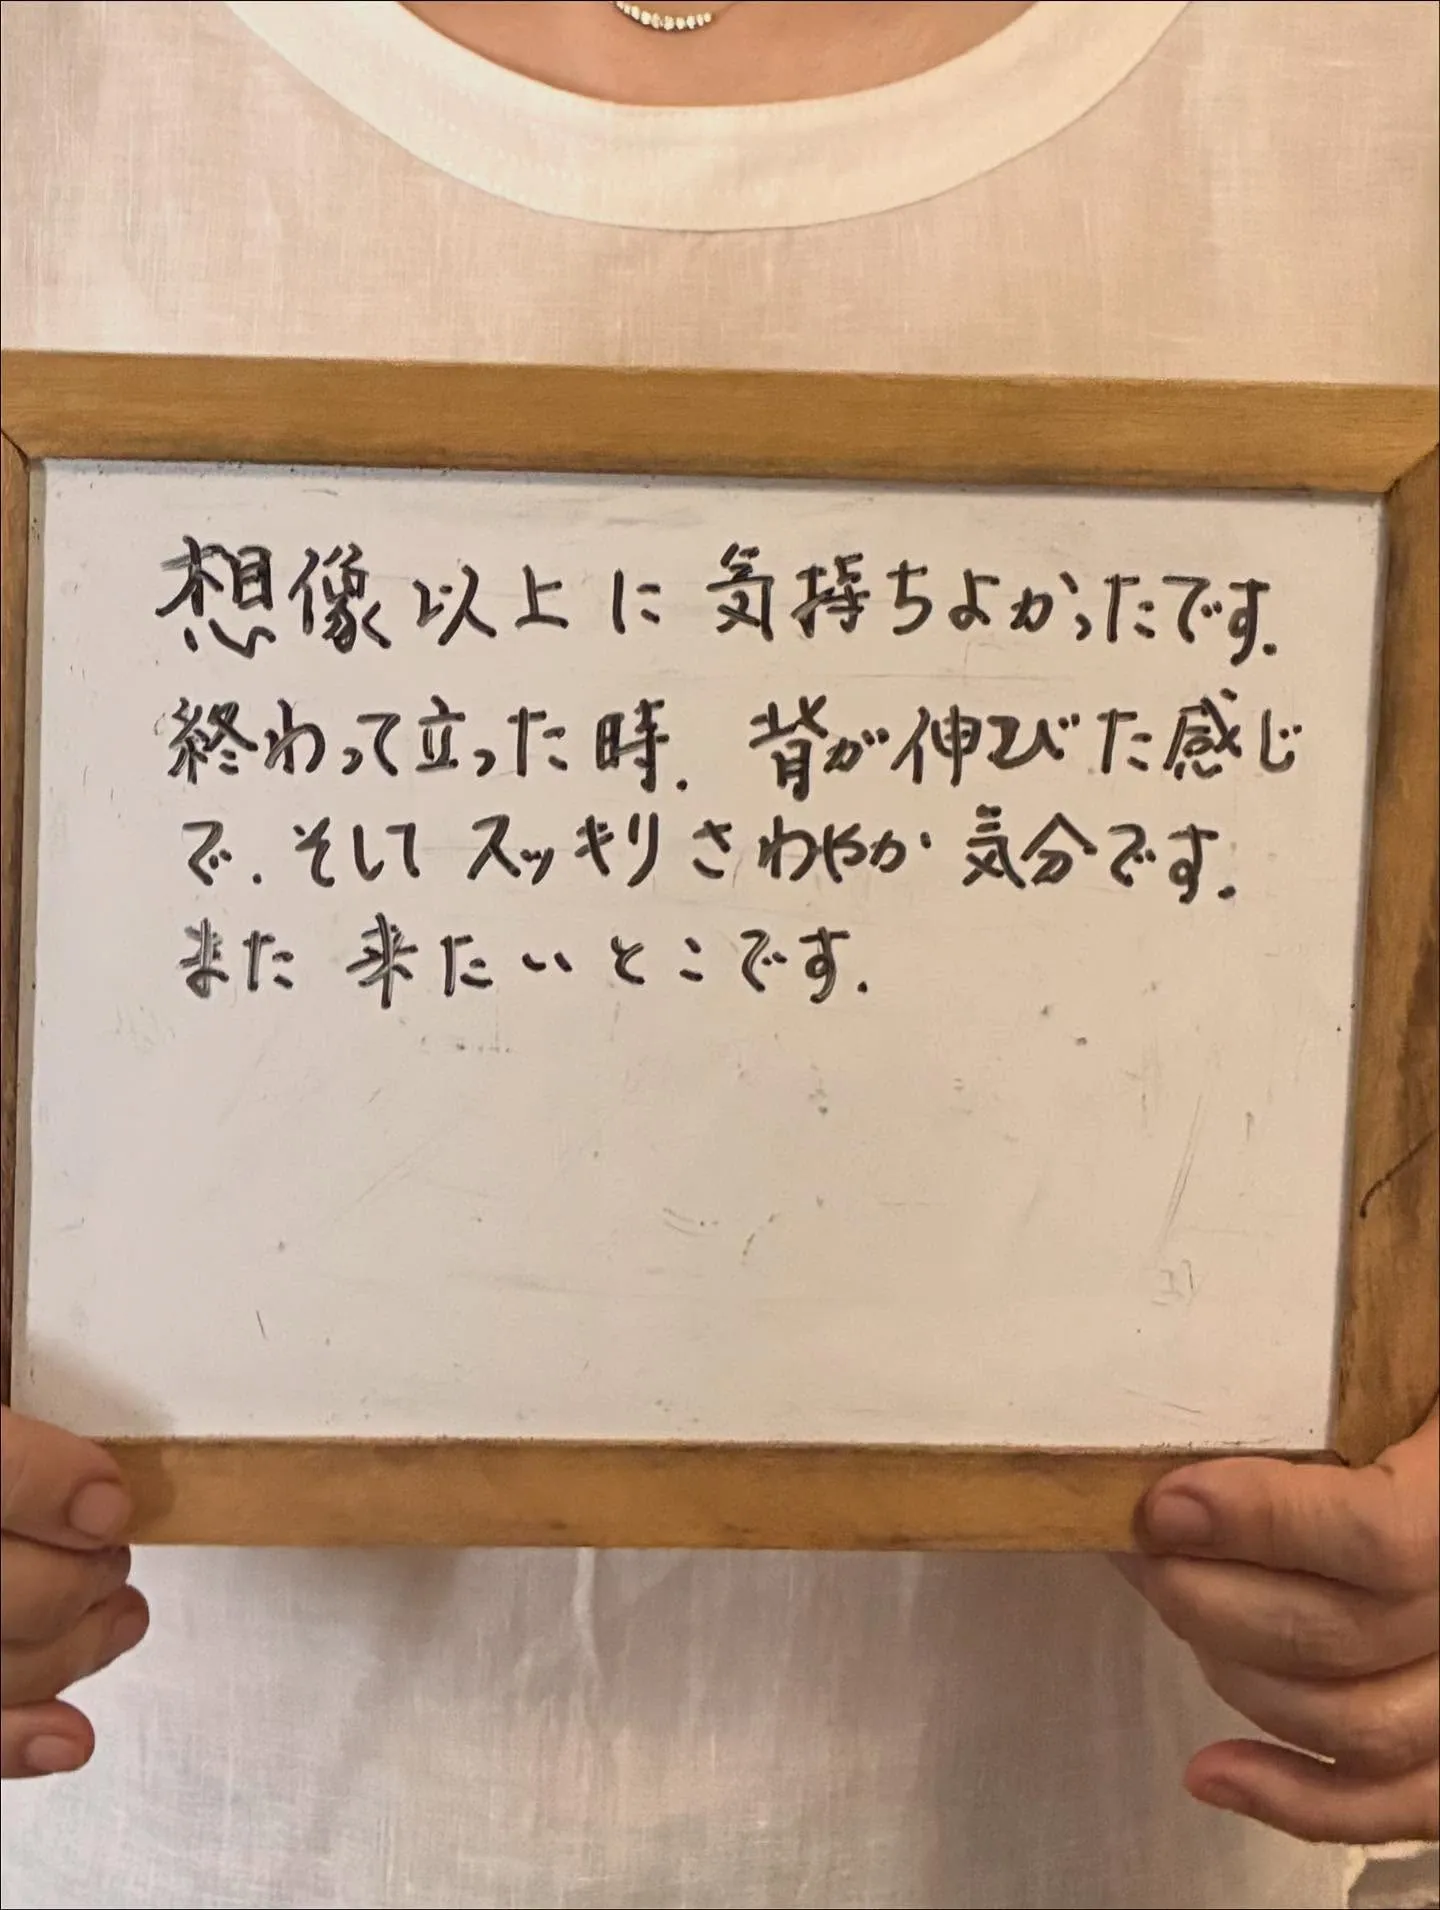 想像以上に気持ちよかったです.
終わって立った時. 背が伸びた感じ
で. そしてスッキリさわやか気分です.
また来たいとこです.